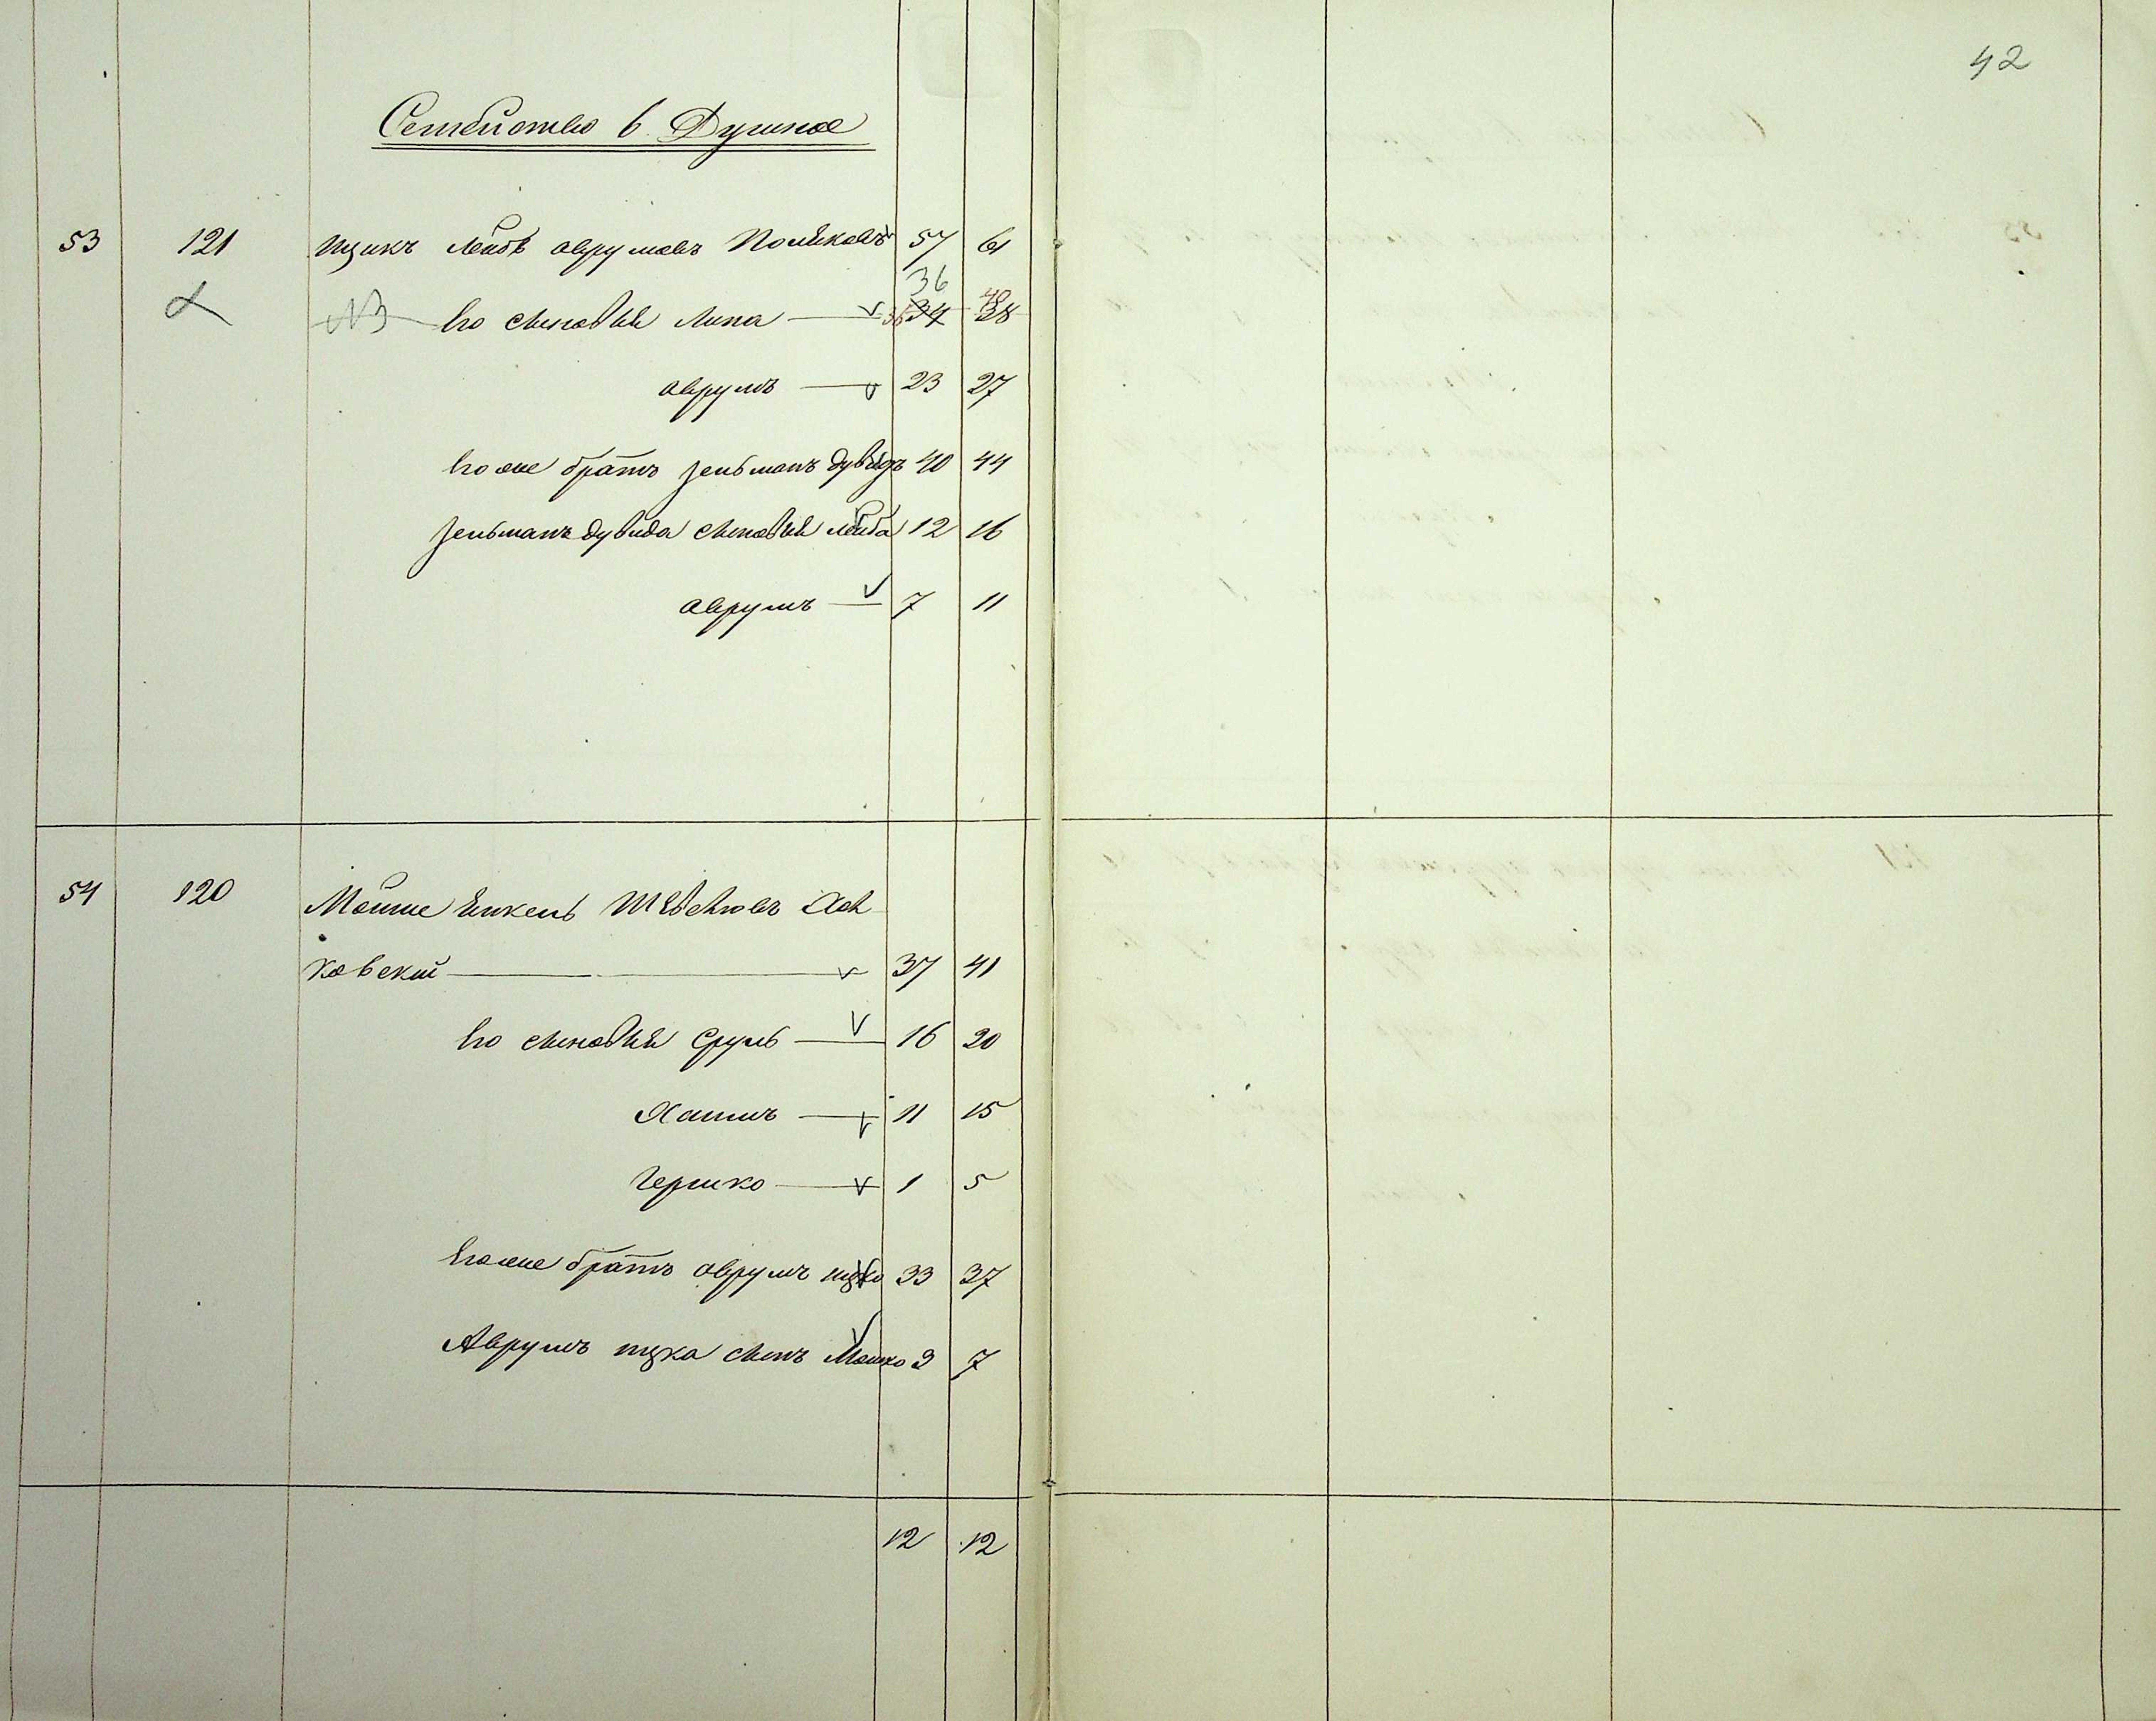 42
Семейство 6 Душное
53 121 Ицикъ Лейбъ Аврумовъ Поляковъ 57 61
36
NB его сыновья Липа 36 34 40 38
Аврумъ 23 27
его же братъ Зельманъ Дувидъ 40 44
Зельманъ Дувида сыновья Лейба 12 16
Аврумъ 7 11
54 120 Мойше Янкель
ковский 37 41
его сыновья Сруль 16 20
Хаимъ 11 15
Гершко 1 5
его же братъ Аврумъ Ицко 33 37
Аврумъ Ицка сынъ Мошко 3 7
12 12